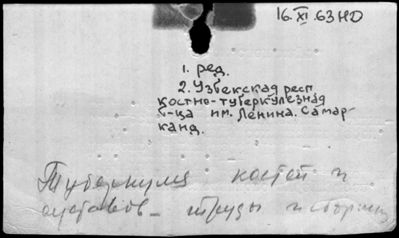 16.XI.63 НО
1. ред.
2. Узбекская респ
костно-туберкулезная
б-ца им. Ленина. Самар-
канд.
Туберкулез костей и
суставов – труды и сборники